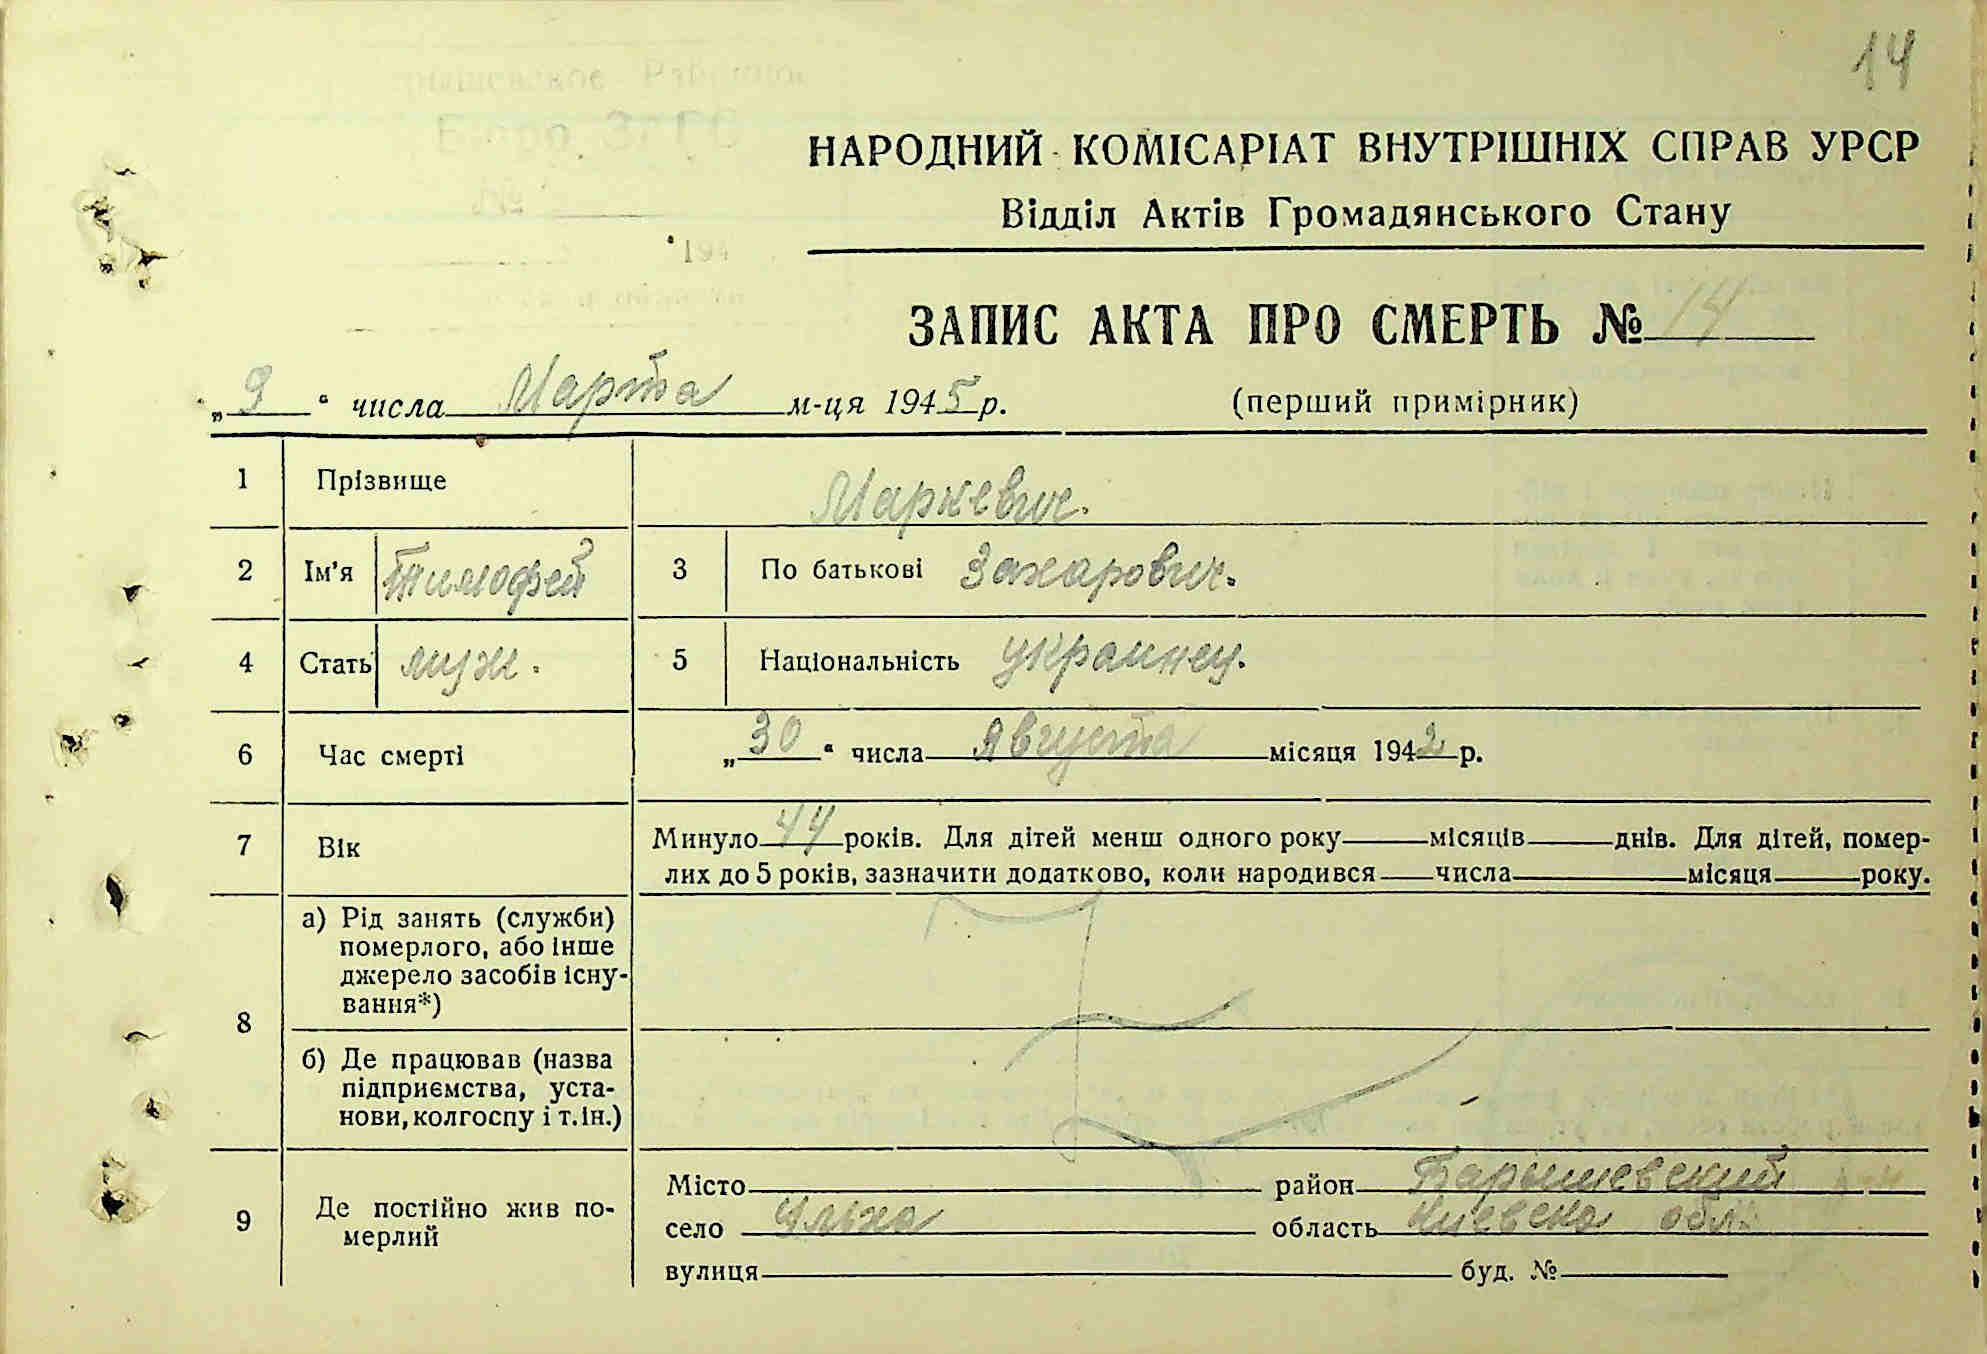 14
НАРОДНИЙ КОМІСАРІАТ ВНУТРІШНІХ СПРАВ УРСР
Відділ Актів Громадянського Стану
ЗАПИС АКТА ПРО СМЕРТЬ № 14
„ 9 “ числа Марта м-ця 1945 р. (перший примірник)
1 Прізвище Маркевич.
2 Ім'я Тимофей 3 По батькові Захарович.
4 Стать муж. 5 Національність украинец.
6 Час смерті „ 30 “ числа Августа місяця 1942 р.
7 Вік Минуло 44 років. Для дітей менш одного року місяців днів. Для дітей, помер-
лих до 5 років, зазначити додатково, коли народився числа місяця року.
8 а) Рід занять (служби)
померлого, або інше
джерело засобів існу-
вання*)
б) Де працював (назва
підприємства, уста-
нови, колгоспу і т. ін.)
9 Де постійно жив по-
мерлий
Місто район Барышевский
село область Киевска обл.
вулиця буд. №